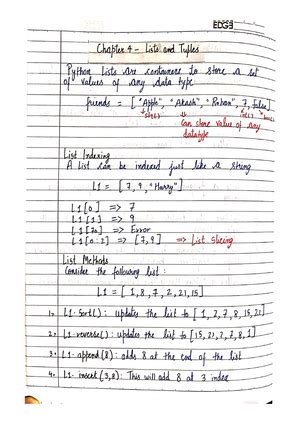 EDGE
Chapter 4 - Lists and Tuples
Python Lists are containers to store a set
of values of any data type
friends = [ "Apple", "Akash", "Rohan", 7, false ]
str() int() bool
Can store value of any
datatype
List Indexing
A list can be indexed just like a string
L1 = [ 7, 9, "Harry" ]
L1[0] => 7
L1[1] => 9
L1[70] => Error
L1[0:2] => [7,9] => List slicing
List Methods
Consider the following list:
L1 = [ 1, 8, 7, 2, 21, 15 ]
1. L1.sort(): updates the list to [ 1, 2, 7, 8, 15, 21 ]
2. L1.reverse(): updates the list to [15, 21, 2, 7, 8, 1]
3. L1.append(8): adds 8 at the end of the list
4. L1.insert(3,8): This will add 8 at 3 index